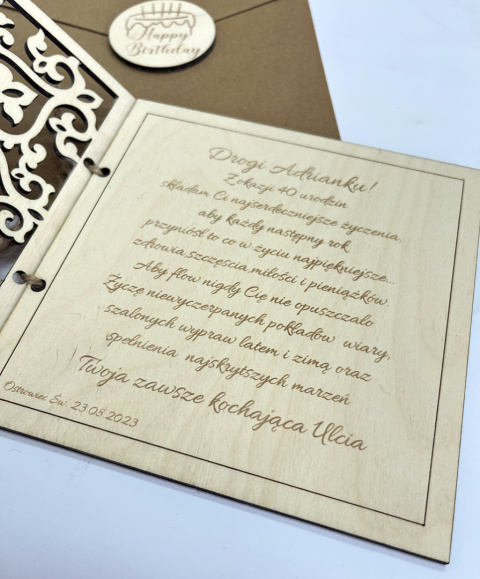 Happy
Birthday
Drogi Adrianku!
Z okazji 40 urodzin
składam Ci najserdeczniejsze życzenia,
aby każdy następny rok
przyniósł to co w życiu najpiękniejsze...
zdrowia, szczęścia, miłości i pieniążków.
Aby flow nigdy Cię nie opuszczało
Życzę niewyczerpanych pokładów wiary,
szalonych wypraw latem i zimą oraz
spełnienia najskrytszych marzeń
Twoja zawsze kochająca Ulcia
Ostrowiec Św. 23.05 2023